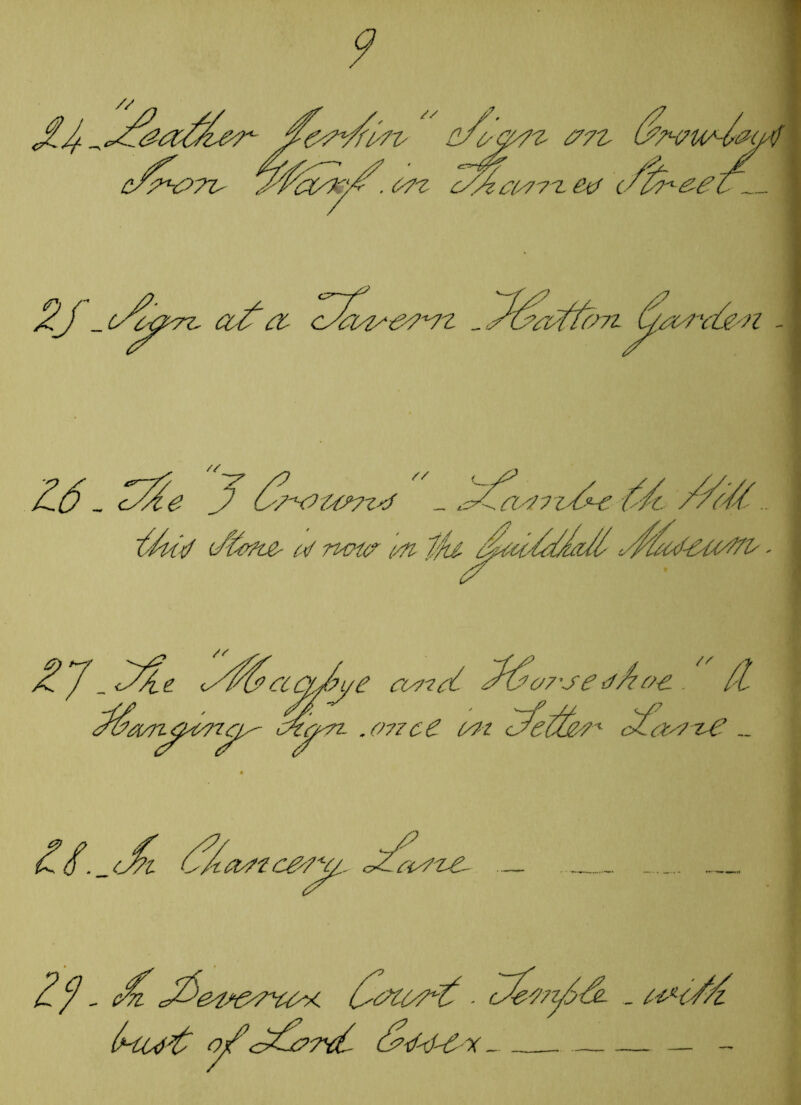 9
24 - "Leather Jerkin" Sign on Crow-bays
from Wharf. in Thames Street —
25 - Sign at a Tavern - Hatton Garden -
26 - The "3 Crowns" - Lambe th Hill ..
this Stone is now in The Guildhall Museum -
27 - The "Magpye and Horseshoe." A
Hanging Sign. once in Fetter Lane -
28. - In Chancery Lane - — — —
29 - In Devereux Court - Temple - with
bust of Lord Essex - — — — — -